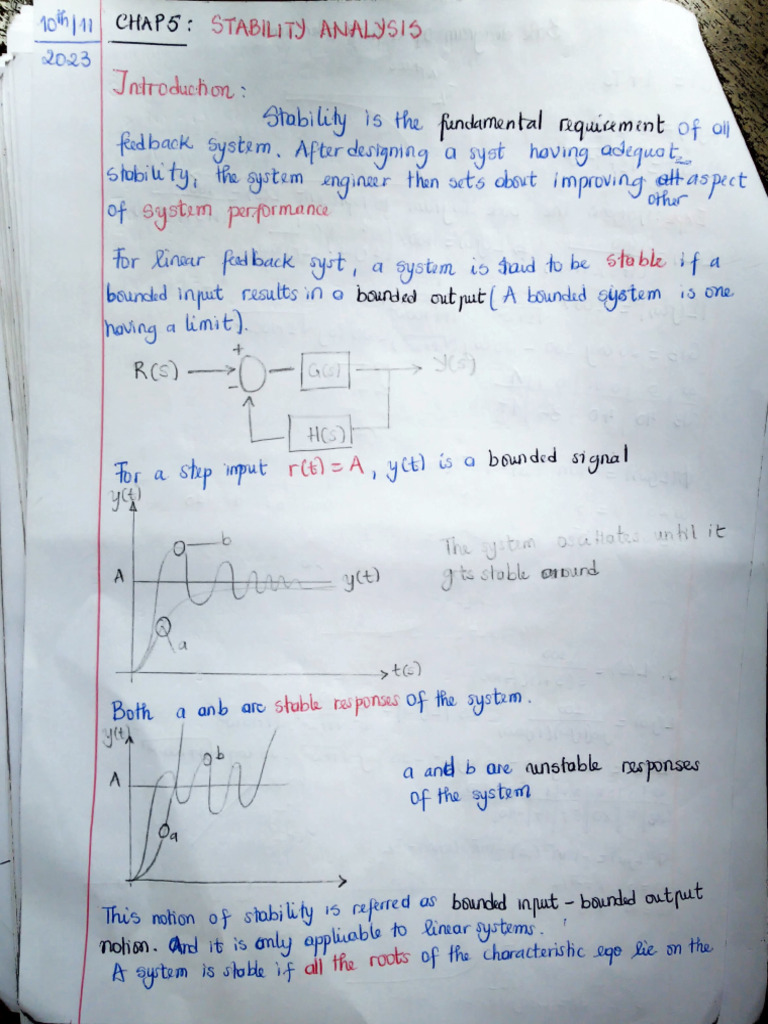 10th/11
2023
CHAP5: STABILITY ANALYSIS
Introduction:
Stability is the fundamental requirement of all
feedback system. After designing a syst having adequat
stability, the system engineer then sets about improving aspect
other
of system performance
For linear feedback syst, a system is said to be stable if a
bounded input results in a bounded output (A bounded system is one
having a limit).
R(s) + - G(s) Y(s)
H(s)
For a step input r(t) = A, y(t) is a bounded signal
y(t)
b
The system oscillates until it
A y(t) gts stable around
a
t(s)
Both a anb are stable responses of the system.
y(t)
b
a and b are unstable responses
A
of the system
a
This notion of stability is referred as bounded input - bounded output
notion. And it is only applicable to linear systems.
A system is stable if all the roots of the characteristic eqo lie on the